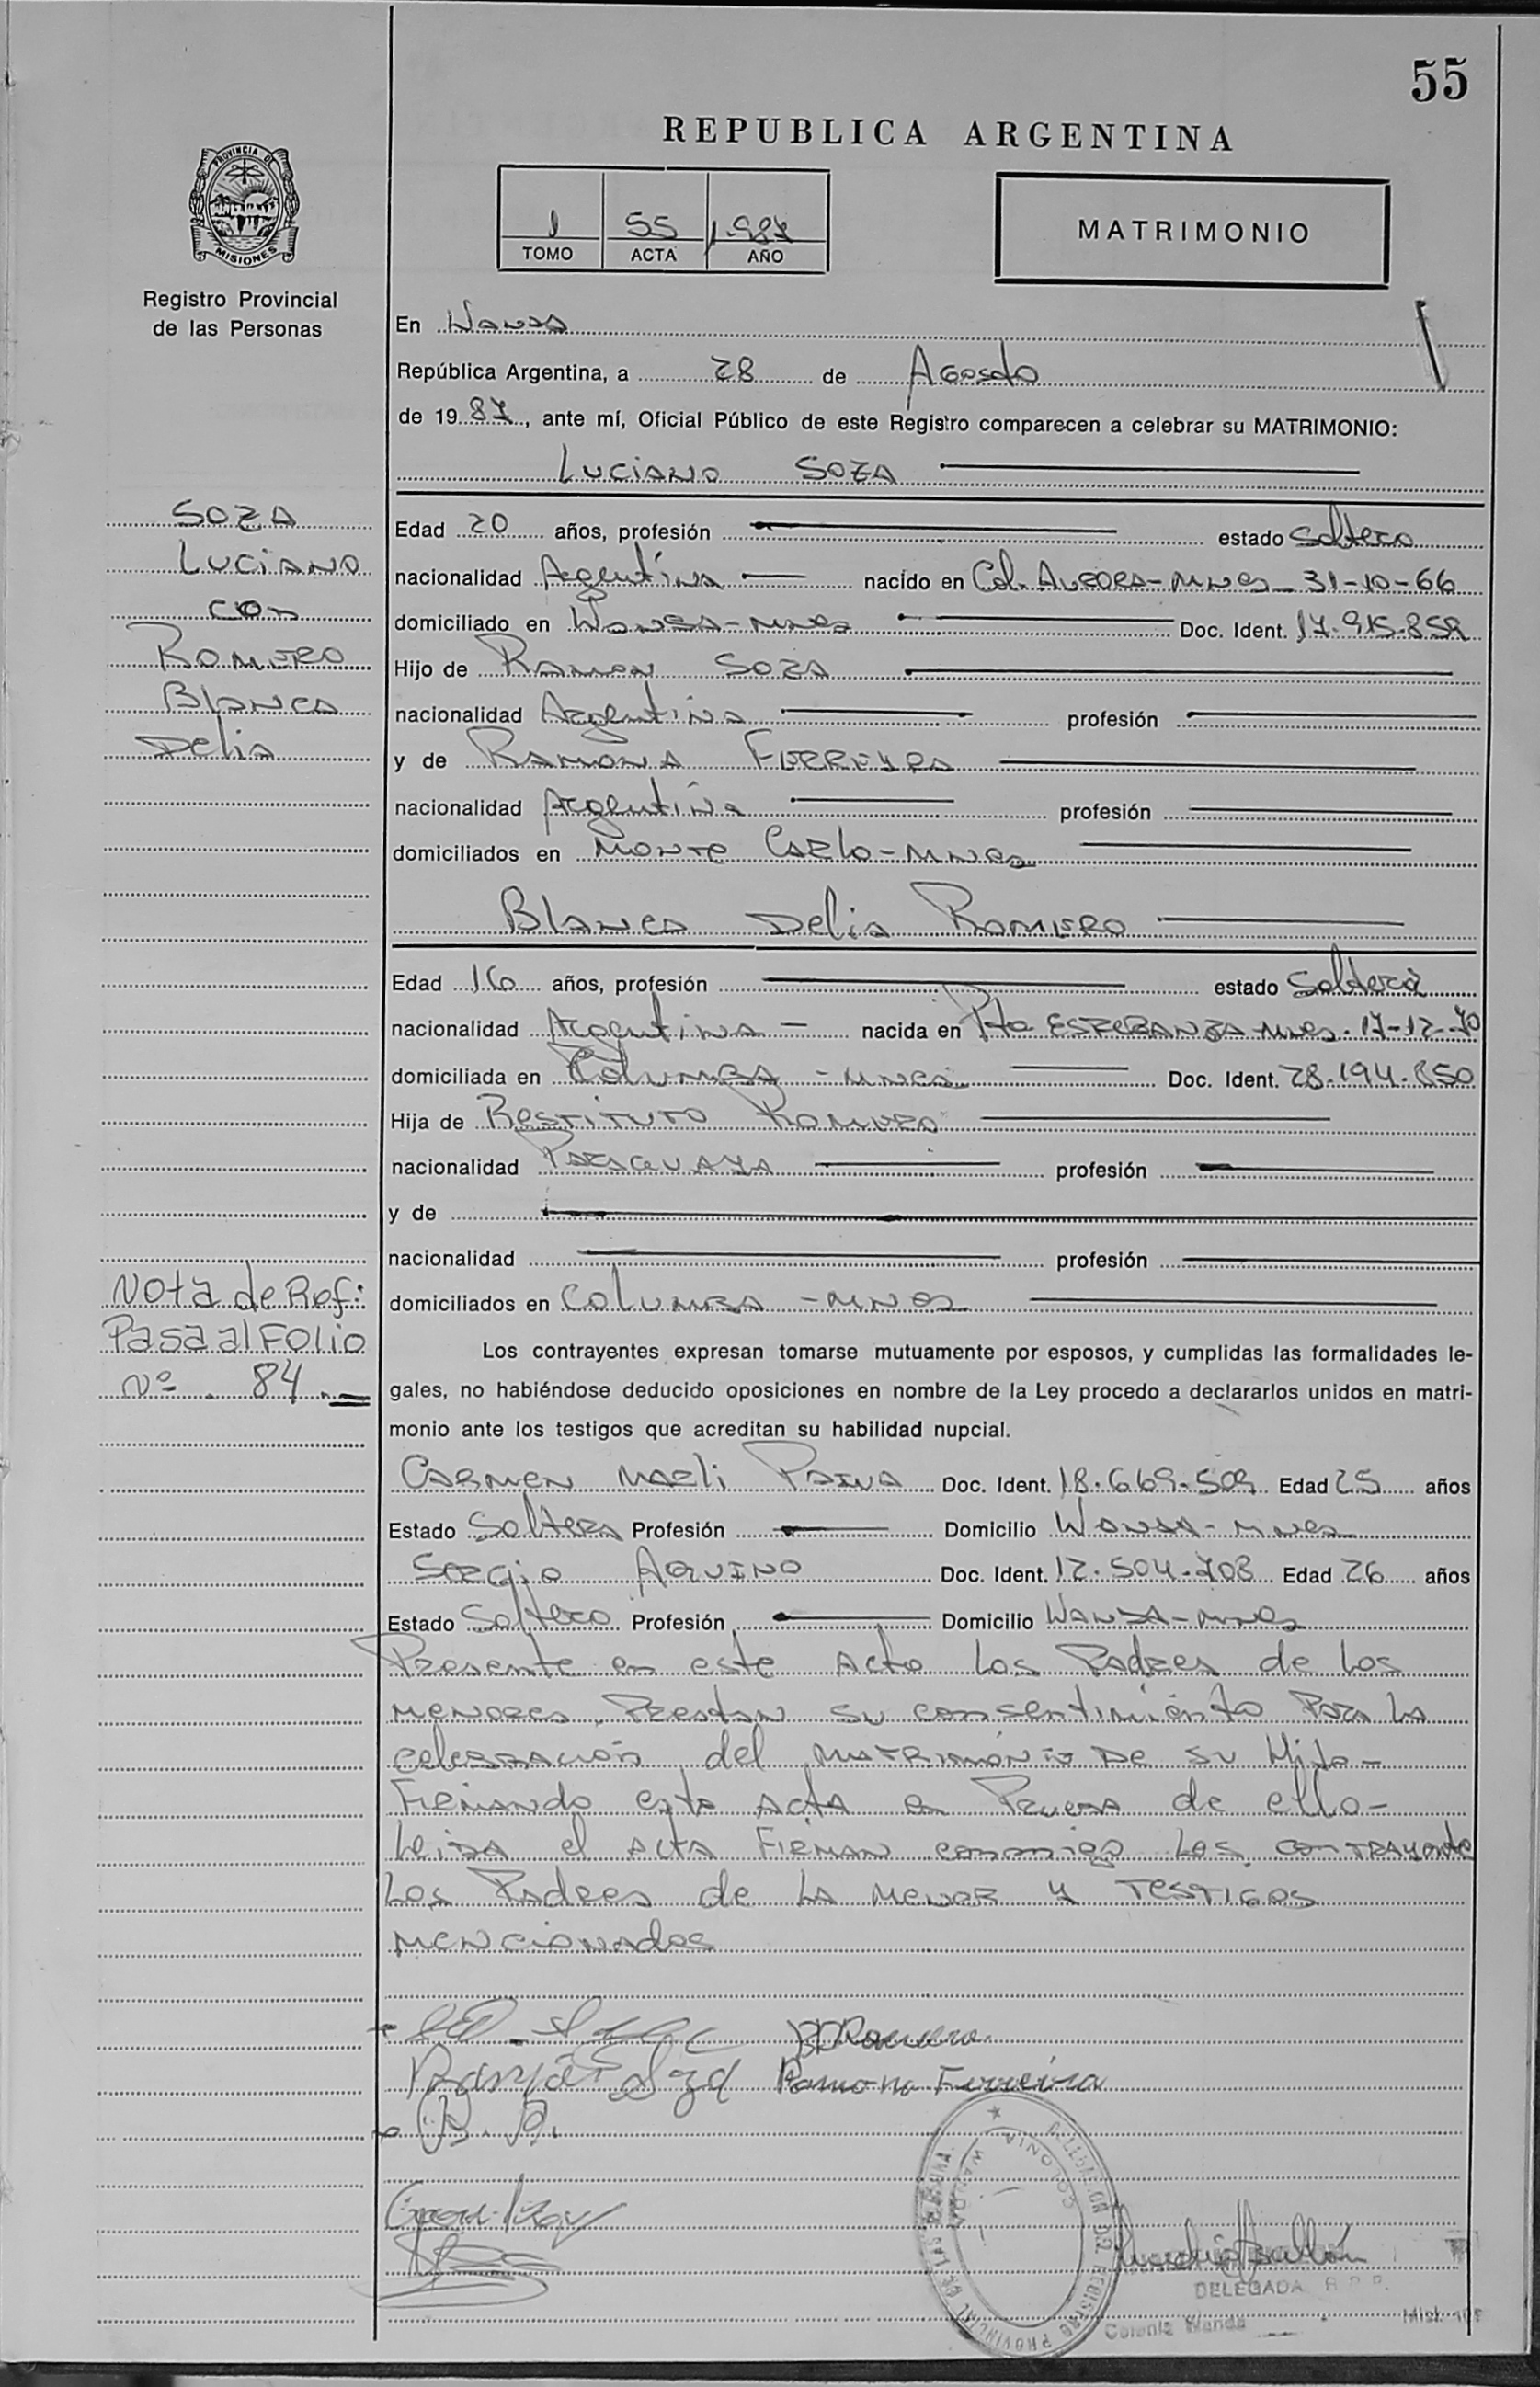 55
REPUBLICA ARGENTINA
PROVINCIA DE
MISIONES
Registro Provincial
de las Personas
1 55 1.987
TOMO ACTA AÑO
MATRIMONIO
En Wanda
República Argentina, a 28 de Agosto
de 1987, ante mí, Oficial Público de este Registro comparecen a celebrar su MATRIMONIO:
Luciano Soza
Soza
Luciano
con
Romero
Blanca
Delia
Edad 20 años, profesión estado Soltero
nacionalidad Argentina nacido en Col. Aurora-Mnes 31-10-66
domiciliado en Wanda-Mnes Doc. Ident. 17.915.859
Hijo de Ramon Soza
nacionalidad Argentina profesión
y de Ramona Ferreyra
nacionalidad Argentina profesión
domiciliados en Monte Carlo-Mnes
Blanca Delia Romero
Edad 16 años, profesión estado Soltera
nacionalidad Argentina nacida en Pto Esperanza-Mnes. 17-12-70
domiciliada en Columba-Mnes Doc. Ident. 28.194.850
Hija de Restituto Romero
nacionalidad Paraguaya profesión
y de
nacionalidad profesión
domiciliados en Columba-Mnes
Nota de Ref:
Pasa al Folio
Nº 84.=
Los contrayentes expresan tomarse mutuamente por esposos, y cumplidas las formalidades le-
gales, no habiéndose deducido oposiciones en nombre de la Ley procedo a declararlos unidos en matri-
monio ante los testigos que acreditan su habilidad nupcial.
Carmen Marli Paiva Doc. Ident. 18.669.509 Edad 25 años
Estado Soltera Profesión Domicilio Wanda-Mnes
Sergio Aquino Doc. Ident. 12.504.708 Edad 26 años
Estado Soltero Profesión Domicilio Wanda-Mnes
Presente en este Acto los Padres de los
menores, Prestan su consentimiento Para la
celebración del matrimonio de su Hijo-
Firmando esta Acta en Prueba de ello-
Leida el Acta Firman conmigo los contrayente
Los Padres de la menor y Testigos
mencionados
BDRomero
Ramón Soza Ramona Ferreira
R. R.
DELEGACION DEL REGISTRO PROVINCIAL DE LAS PERSONAS
COLONIA WANDA
DELEGADA R.P.P.
Colonia Wanda Mis.